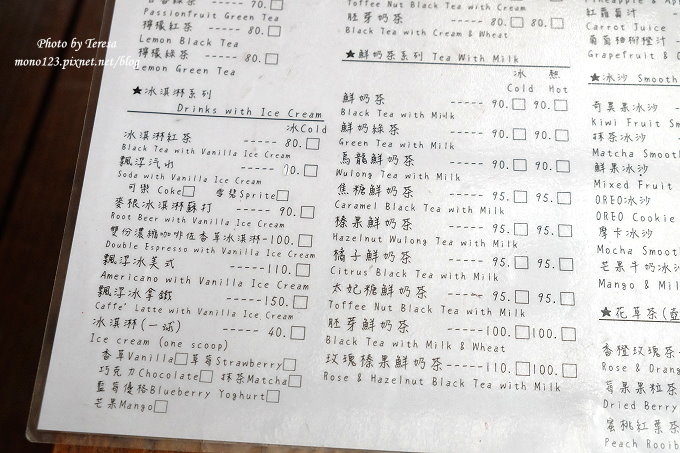 Passionfruit Green Tea
檸檬紅茶 ----- 70.
Lemon Black Tea
檸檬綠茶 ----- 70.
Lemon Green Tea
★冰淇淋系列
Drinks with Ice Cream
冰Cold
冰淇淋紅茶 ----- 80.
Black Tea with Vanilla Ice Cream
飄浮汽水
Soda with Vanilla Ice Cream
可樂 Coke 雪碧Sprite
麥根冰淇淋蘇打 ---- 90.
Root Beer with Vanilla Ice Cream
雙份濃縮咖啡佐香草冰淇淋-100.
Double Espresso with Vanilla Ice Cream
飄浮冰美式 -----110.
Americano with Vanilla Ice Cream
飄浮冰拿鐵 -----150.
Caffe' Latte with Vanilla Ice Cream
冰淇淋(一球) ---- 40.
Ice cream (one scoop)
香草Vanilla 草莓Strawberry
巧克力Chocolate 抹茶Matcha
藍莓優格Blueberry Yoghurt
芒果Mango
Toffee Nut Black Tea with Cream
胚芽奶茶 ----- 80. 80.
Black Tea with Cream & Wheat
★鮮奶茶系列 Tea With Milk
冰 熱
Cold Hot
鮮奶茶 ----- 90. 90.
Black Tea with Milk
鮮奶綠茶 ----- 90. 90.
Green Tea with Milk
烏龍鮮奶茶 ----- 90. 90.
Wulong Tea with Milk
焦糖鮮奶茶 ----- 95. 95.
Caramel Black Tea with Milk
榛果鮮奶茶 ----- 95. 95.
Hazelnut Wulong Tea with Milk
橘子鮮奶茶 ----- 95. 95.
Citrus Black Tea with Milk
太妃糖鮮奶茶 ----- 95. 95.
Toffee Nut Black Tea with Milk
胚芽鮮奶茶 -----100. 100.
Black Tea with Milk & Wheat
玫瑰榛果鮮奶茶------110. 110.
Rose & Hazelnut Black Tea with Milk
紅蘿蔔汁
Carrot Juice
葡萄柚柳橙汁
Grapefruit & O
★冰沙 Smooth
奇異果冰沙
Kiwi Fruit Sm
抹茶冰沙
Matcha Smoot
鮮果冰沙
Mixed Fruit
OREO冰沙
OREO Cookie
摩卡冰沙
Mocha Smooth
芒果牛奶冰沙
Mango & Mil
★花草茶(壺
香橙玫瑰茶
Rose & Orang
莓果果粒茶
Dried Berry
蜜桃紅葉茶
Peach Rooib
Photo by Teresa
mono123.pixnet.net/blog